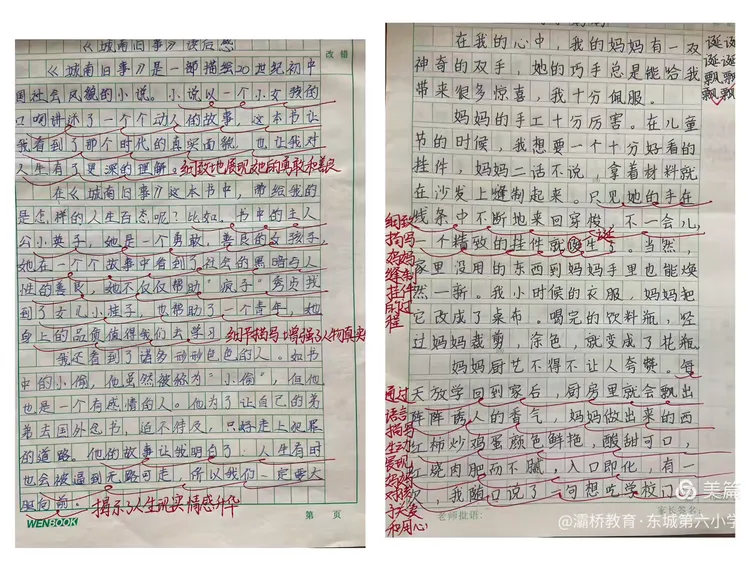 《城南旧事》读后感
改错
《城南旧事》是一部描绘20世纪初中
国社会风貌的小说。小说以一个小女孩的
口吻讲述了一个个动人的故事，这本书让
我看到了那个时代的真实面貌，也让我对
人生有了更深的理解。
细致地展现她的勇敢和善良
在《城南旧事》这本书中，带给我的
是怎样的人生百态呢？比如，书中的主人
公小英子，她是一个勇敢、善良的女孩子，
她在一个个故事中看到了社会的黑暗与人
性的善良，她不仅仅帮助“疯子”秀贞找
到了女儿小桂子，也帮助了一个青年，她
身上的品质值得我们去学习。
细节描写增强了人物真实
我还看到了诸多形形色色的人。如书
中的小偷，他虽然被称为“小偷”，但他
也是一个有感情的人。他为了让自己的弟
弟去国外念书，迫不得及，只好走上犯罪
的道路。他的故事让我明白了：人生有时
也会被逼到无路可走，所以我们一定要大
胆向前。
揭示人生现实情感升华
WENBOOK
第 页
在我的心中，我的妈妈有一双
神奇的双手，她的巧手总是能给我
带来很多惊喜，我十分佩服。
诞诞诞
飘飘飘
妈妈的手工十分厉害。在儿童
节的时候，我想要一个十分好看的
挂件，妈妈二话不说，拿着材料就
在沙发上缝制起来。只见她的手在
线条中不断地来回穿梭，不一会儿，
一个精致的挂件就生了。当然，
诞
家里没用的东西到妈妈手里也能焕
然一新。我小时候的衣服，妈妈把
它改成了桌布。喝完的饮料瓶，经
过妈妈裁剪，涂色，就变成了花瓶
细致
描写
妈妈
缝制
挂件
的过
程
妈妈厨艺不得不让人夸赞。每
天放学回到家后，厨房里就会飘出
阵阵诱人的香气，妈妈做出来的西
红柿炒鸡蛋颜色鲜艳，酸甜可口，
红烧肉肥而不腻，入口即化，有一
次，我随口说了一句想吃学校门
通过
语言
描写
生动
展现
妈妈
对孩
子关爱
和用心
老师批语：
家长签名：
美篇
@灞桥教育·东城第六小学